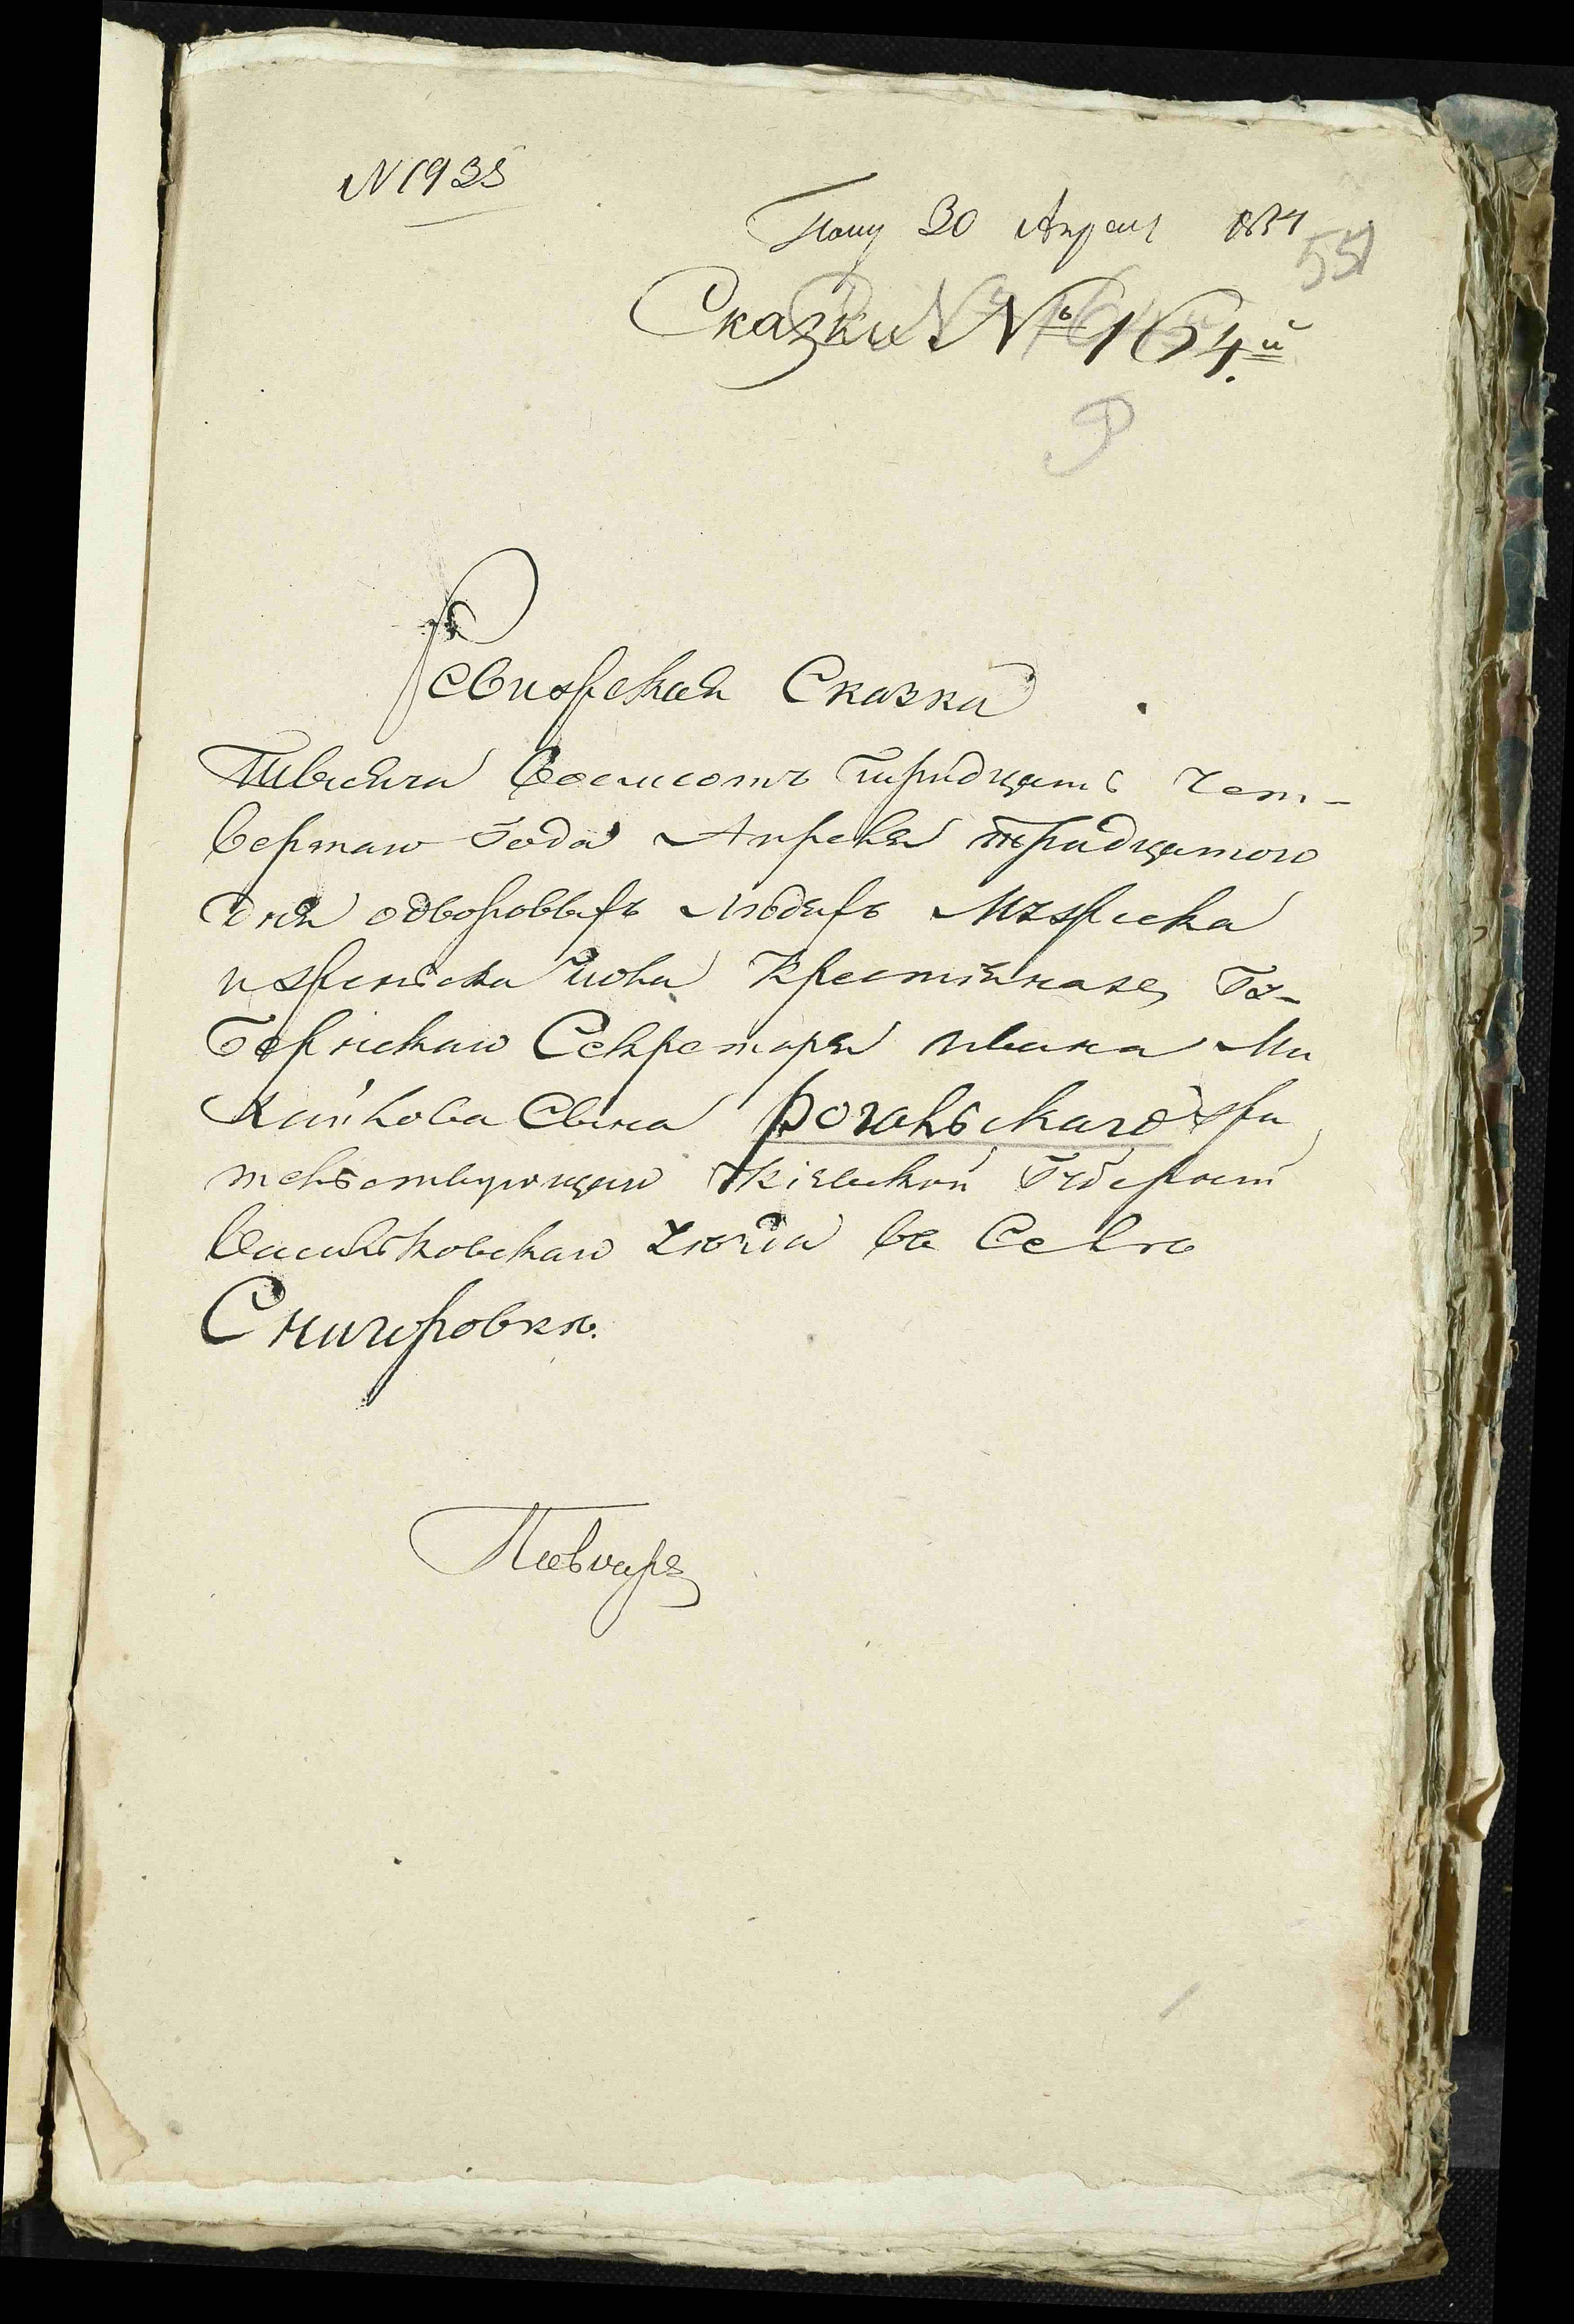 N 1935
Полу 30 Апреля 1834
551
Сказки № 164.й
Р
Ревизская Сказка
Тысяча восемсотъ тридцать чет-
вертаго года Апреля тридцатого
дня одворовыхъ людяхъ Мужеска
и женьска пола крестянахъ Гу-
бернскаго Секретаря Ивана Ми
хайлова сына Рогальскаго жи
тельствующаго Кіевской Губерніи
Васильковскаго уезда въ Селѣ
Снигоровкѣ.